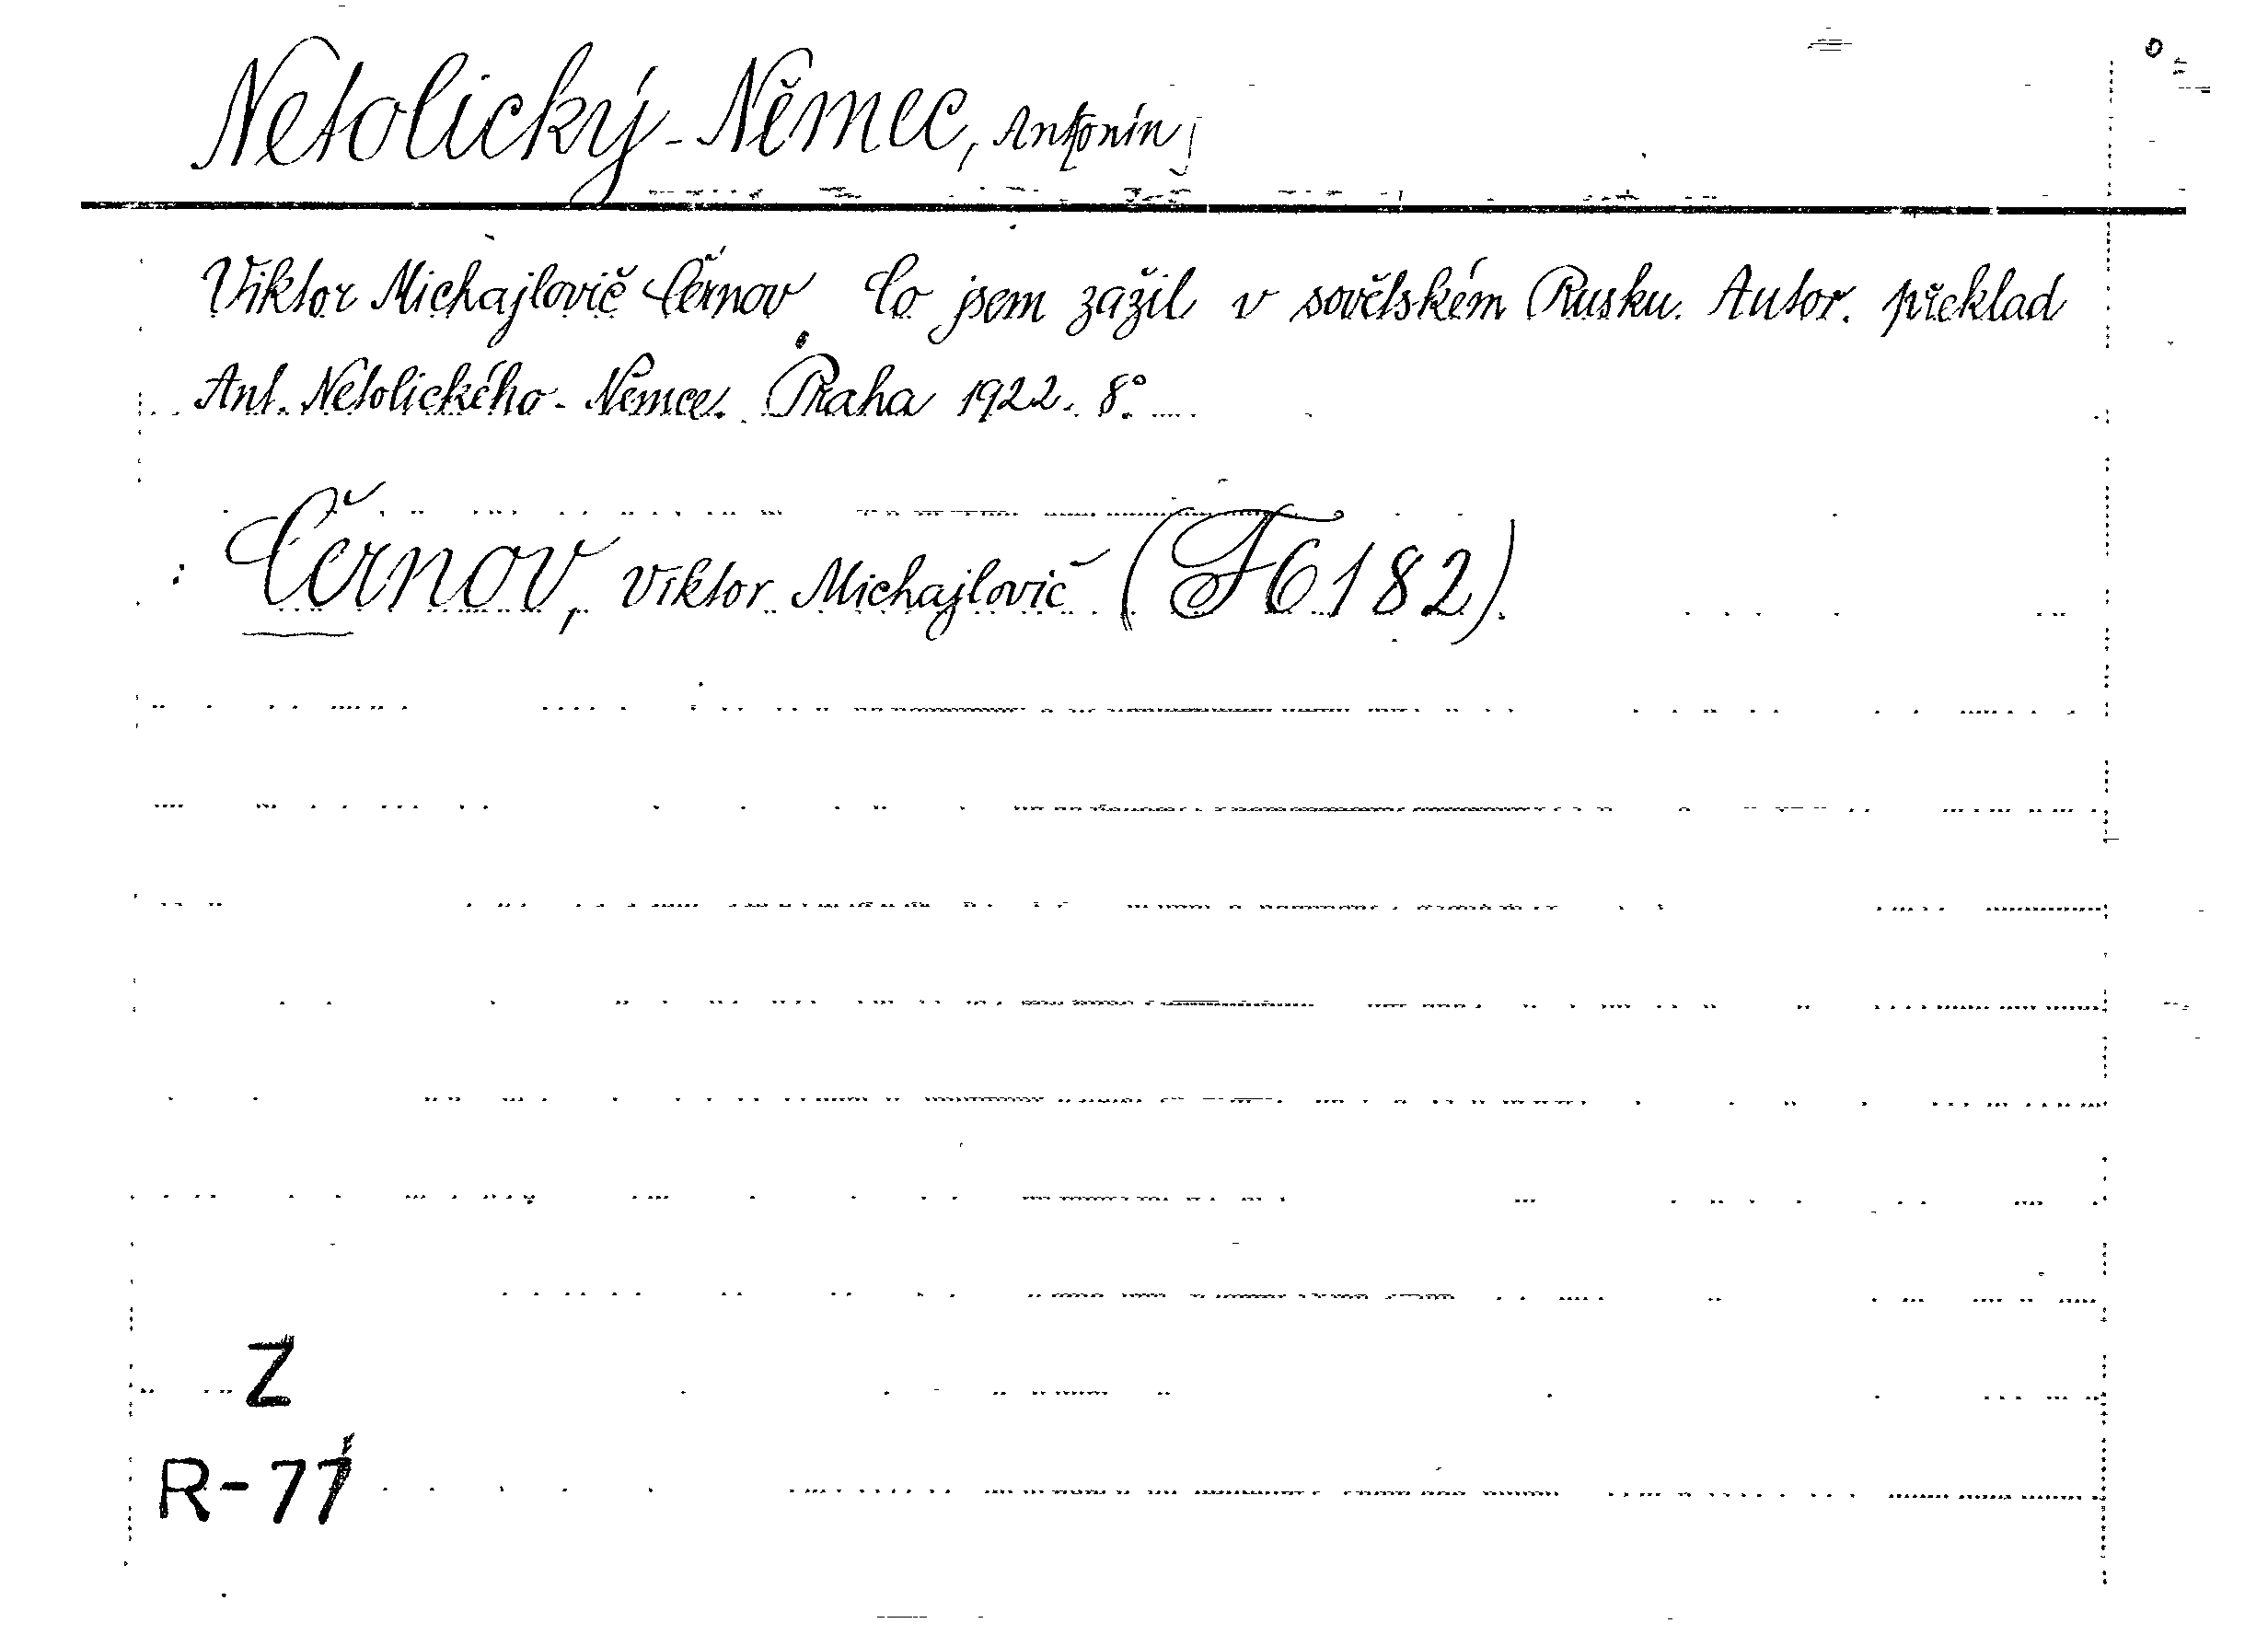 Netolický-Němec, Antonín
Viktor Michajlovič Černov Co jsem zažil v sovětském Rusku. Autor. překlad
Ant. Netolického-Němce. Praha 1922. 8°.
: Černov, Viktor Michajlovič (F 6182).
Z
R-77